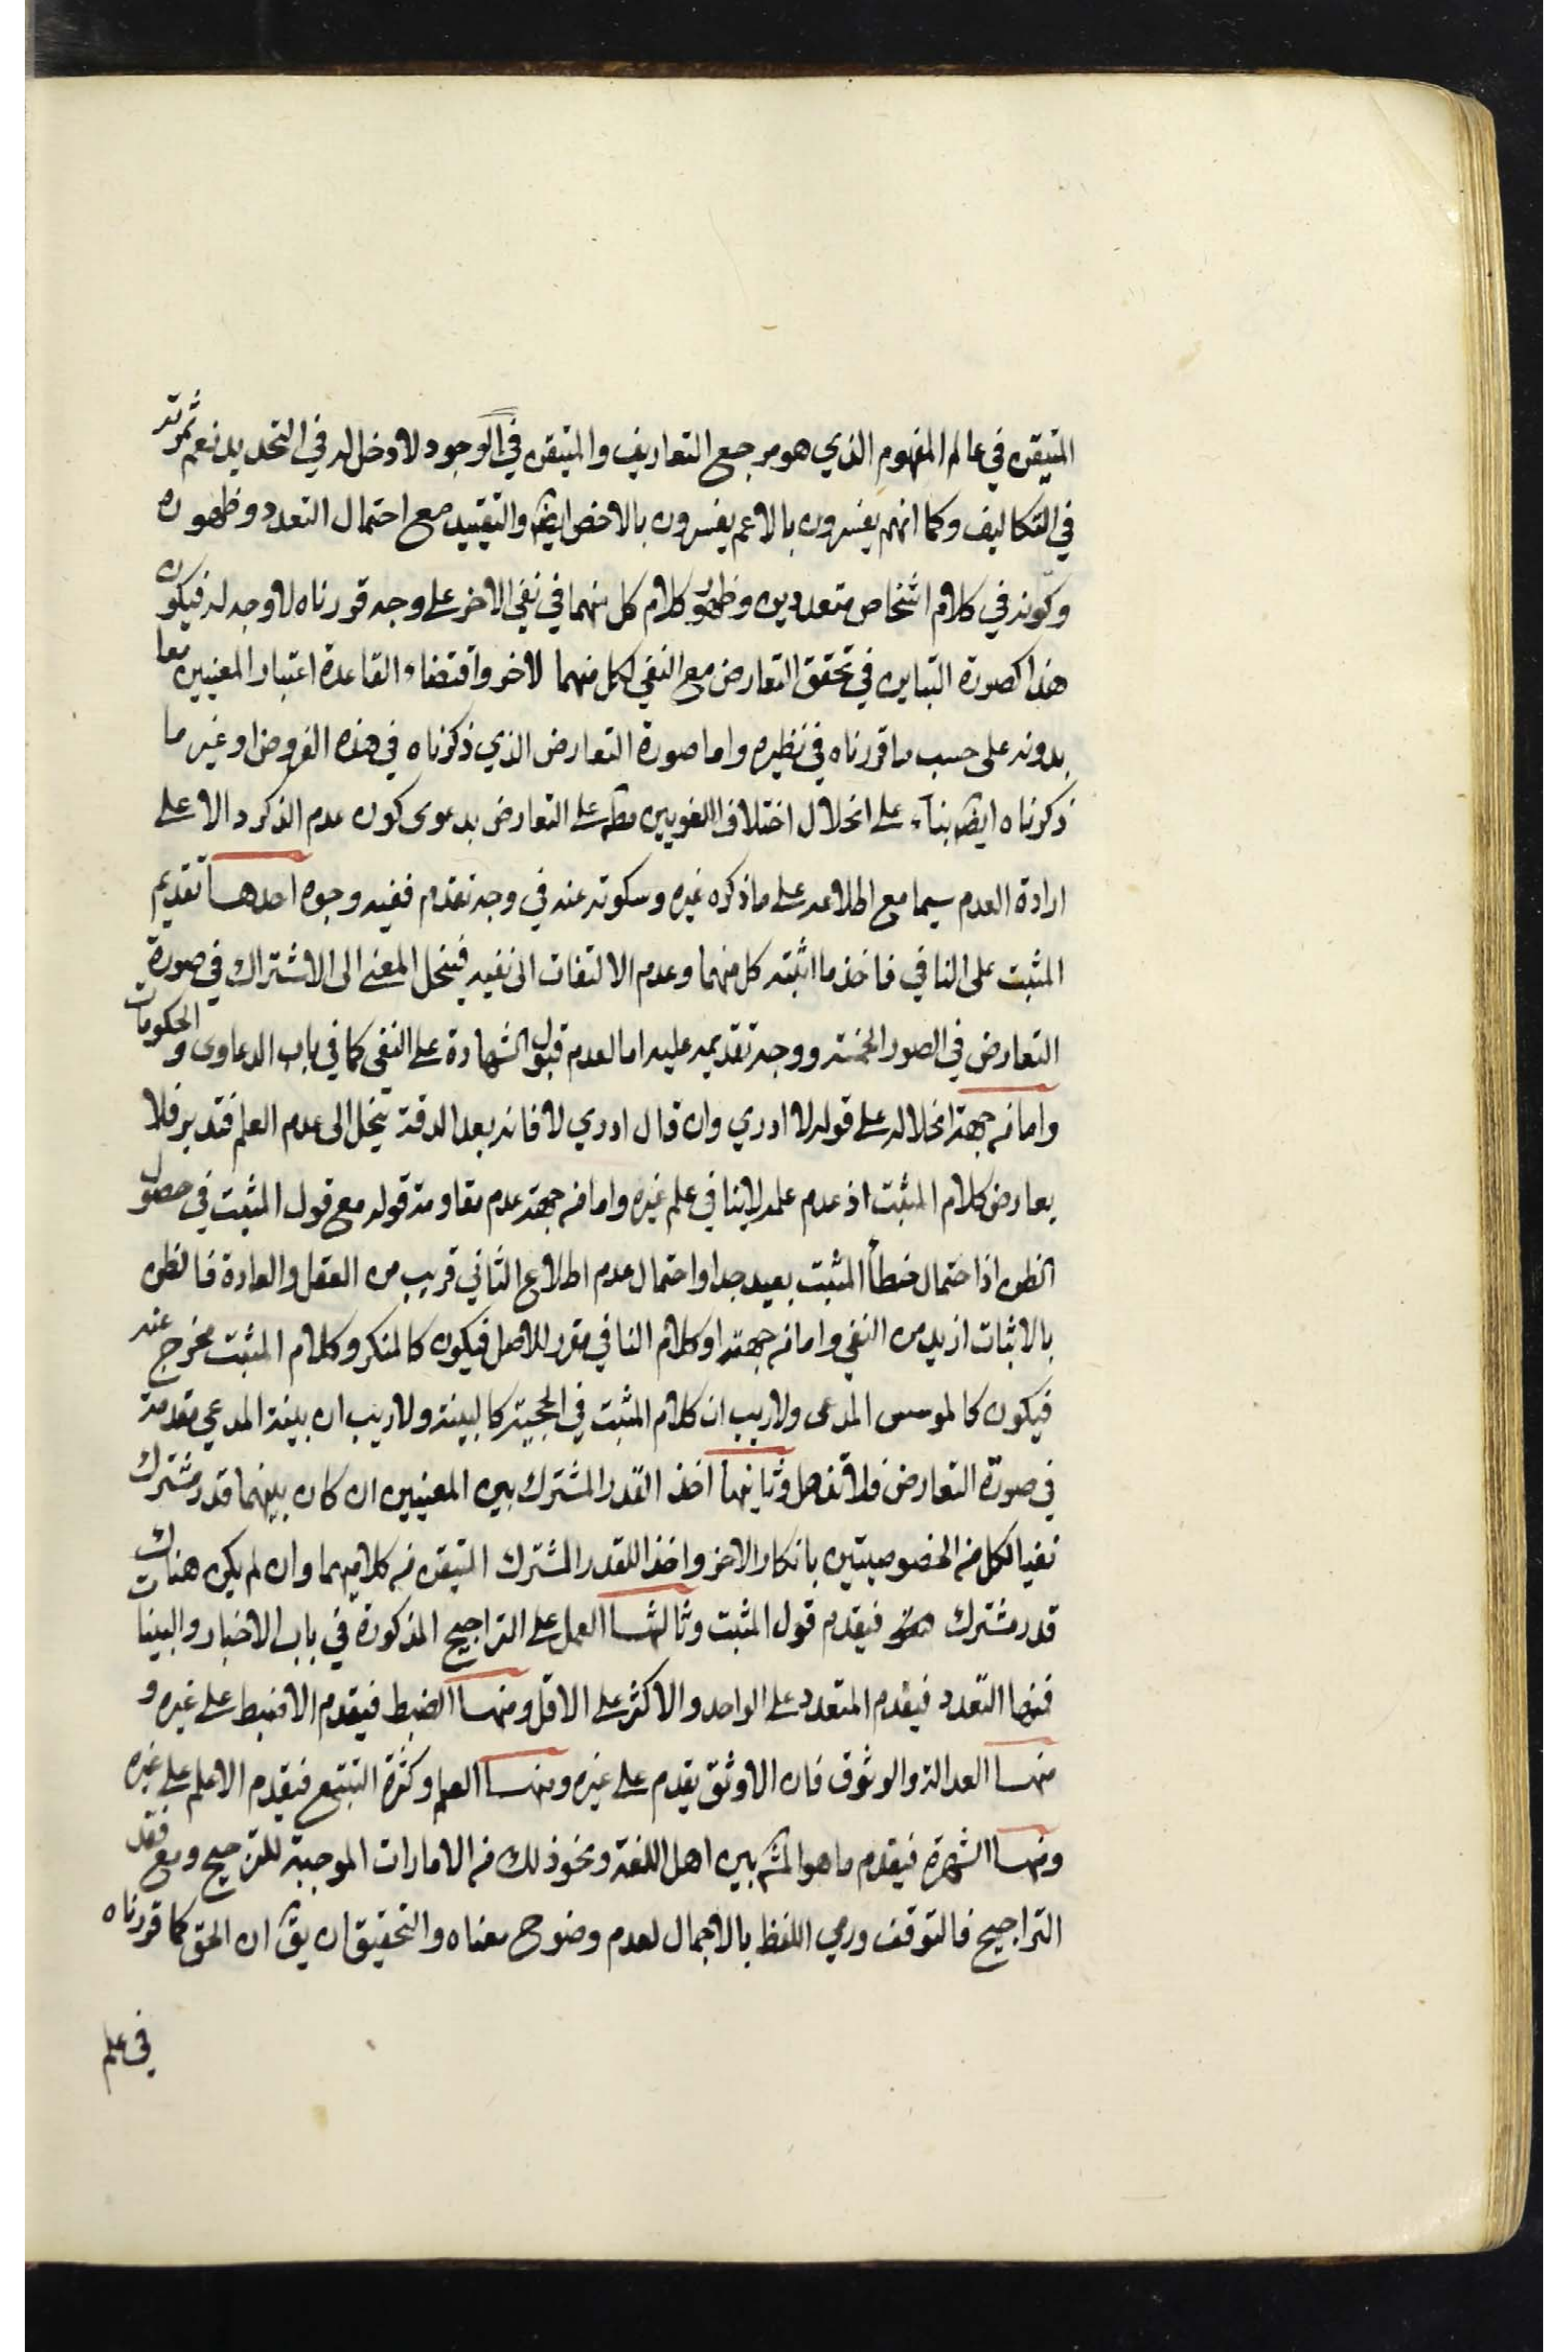 المتيقن في عالم المفهوم الذي هو مرجع التعاريف والمتيقن في الوجود لا دخل له في التحديد نعم ثمرته
في التكاليف وكما انهم يفسرون بالاعم يفسرون بالاخص ايضا والتقييد مع احتمال التعدد وظهوره
وكونه في كلام اشخاص متعددين وظهور كلام كل منهما في نفي الاخر على وجه قررناه لا وجه له فيكون
هذا كصورة التباين في تحقق التعارض مع النفي لكل منهما لاخر واقتضاء القاعدة اعتبار المعنيين معا
بدونه على حسب ما قررناه في نظيره واما صورة التعارض الذي ذكرناه في هذه الفروض او غير ما
ذكرناه ايضا بناء على انحلال اختلاف اللغويين مط على التعارض بدعوى كون عدم الذكر دالا على
ارادة العدم سيما مع اطلاعه على ما ذكره غيره وسكوته عنه في وجه تقدم ففيه وجوه احدها تقديم
المثبت على النافي فاخذ ما اثبته كل منهما وعدم الالتفات الى نفيه فينحل المعنى الى الاشتراك في صورة
التعارض في الصور الخمسة ووجه تقديمه عليه اما لعدم قبول الشهادة على النفي كما في باب الدعاوى والحكومات
واما من جهة انحلاله على قوله لا ادري وان قال ادري لا فانه بعد الدقة ينحل الى عدم العلم فتدبر فلا
يعارض كلام المثبت اذ عدم علمه لا ينافي علم غيره واما من جهة عدم مقاومة قوله مع قول المثبت في حصول
الظن اذ احتمال خطأ المثبت بعيد جدا واحتمال عدم اطلاع الثاني قريب من العقل والعادة فالظن
بالاثبات ازيد من النفي واما من جهة او كلام النافي مقرر للاصل فيكون كالمنكر وكلام المثبت مخرج عنه
فيكون كالموسس المدعى ولا ريب ان كلام المثبت في الحجية كالبينة ولا ريب ان بينة المدعي مقدمة
في صورة التعارض فلا تذهل وثانيها اخذ القدر المشترك بين المعنيين ان كان بينهما قدر مشترك
نفيا لكل من الخصوصيتين بانكار الاخر واخذا للقدر المشترك المتيقن من كلاميهما وان لم يكن هناك
قدر مشترك فيقدم قول المثبت وثالثها العمل على التراجيح المذكورة في باب الاخبار والبينات
فمنها التعدد فيقدم المتعدد على الواحد والاكثر على الاقل ومنها الضبط فيقدم الاضبط على غيره و
منها العدالة والوثوق فان الاوثق يقدم على غيره ومنها العلم وكثرة التتبع فيقدم الاعلم على غيره
ومنها الشهرة فيقدم ما هو المشه بين اهل اللغة ونحو ذلك من الامارات الموجبة للترجيح ومع فقد
التراجيح فالتوقف ورمي اللفظ بالاجمال لعدم وضوح معناه والتحقيق ان يق ان الحق كما قررناه
في علم